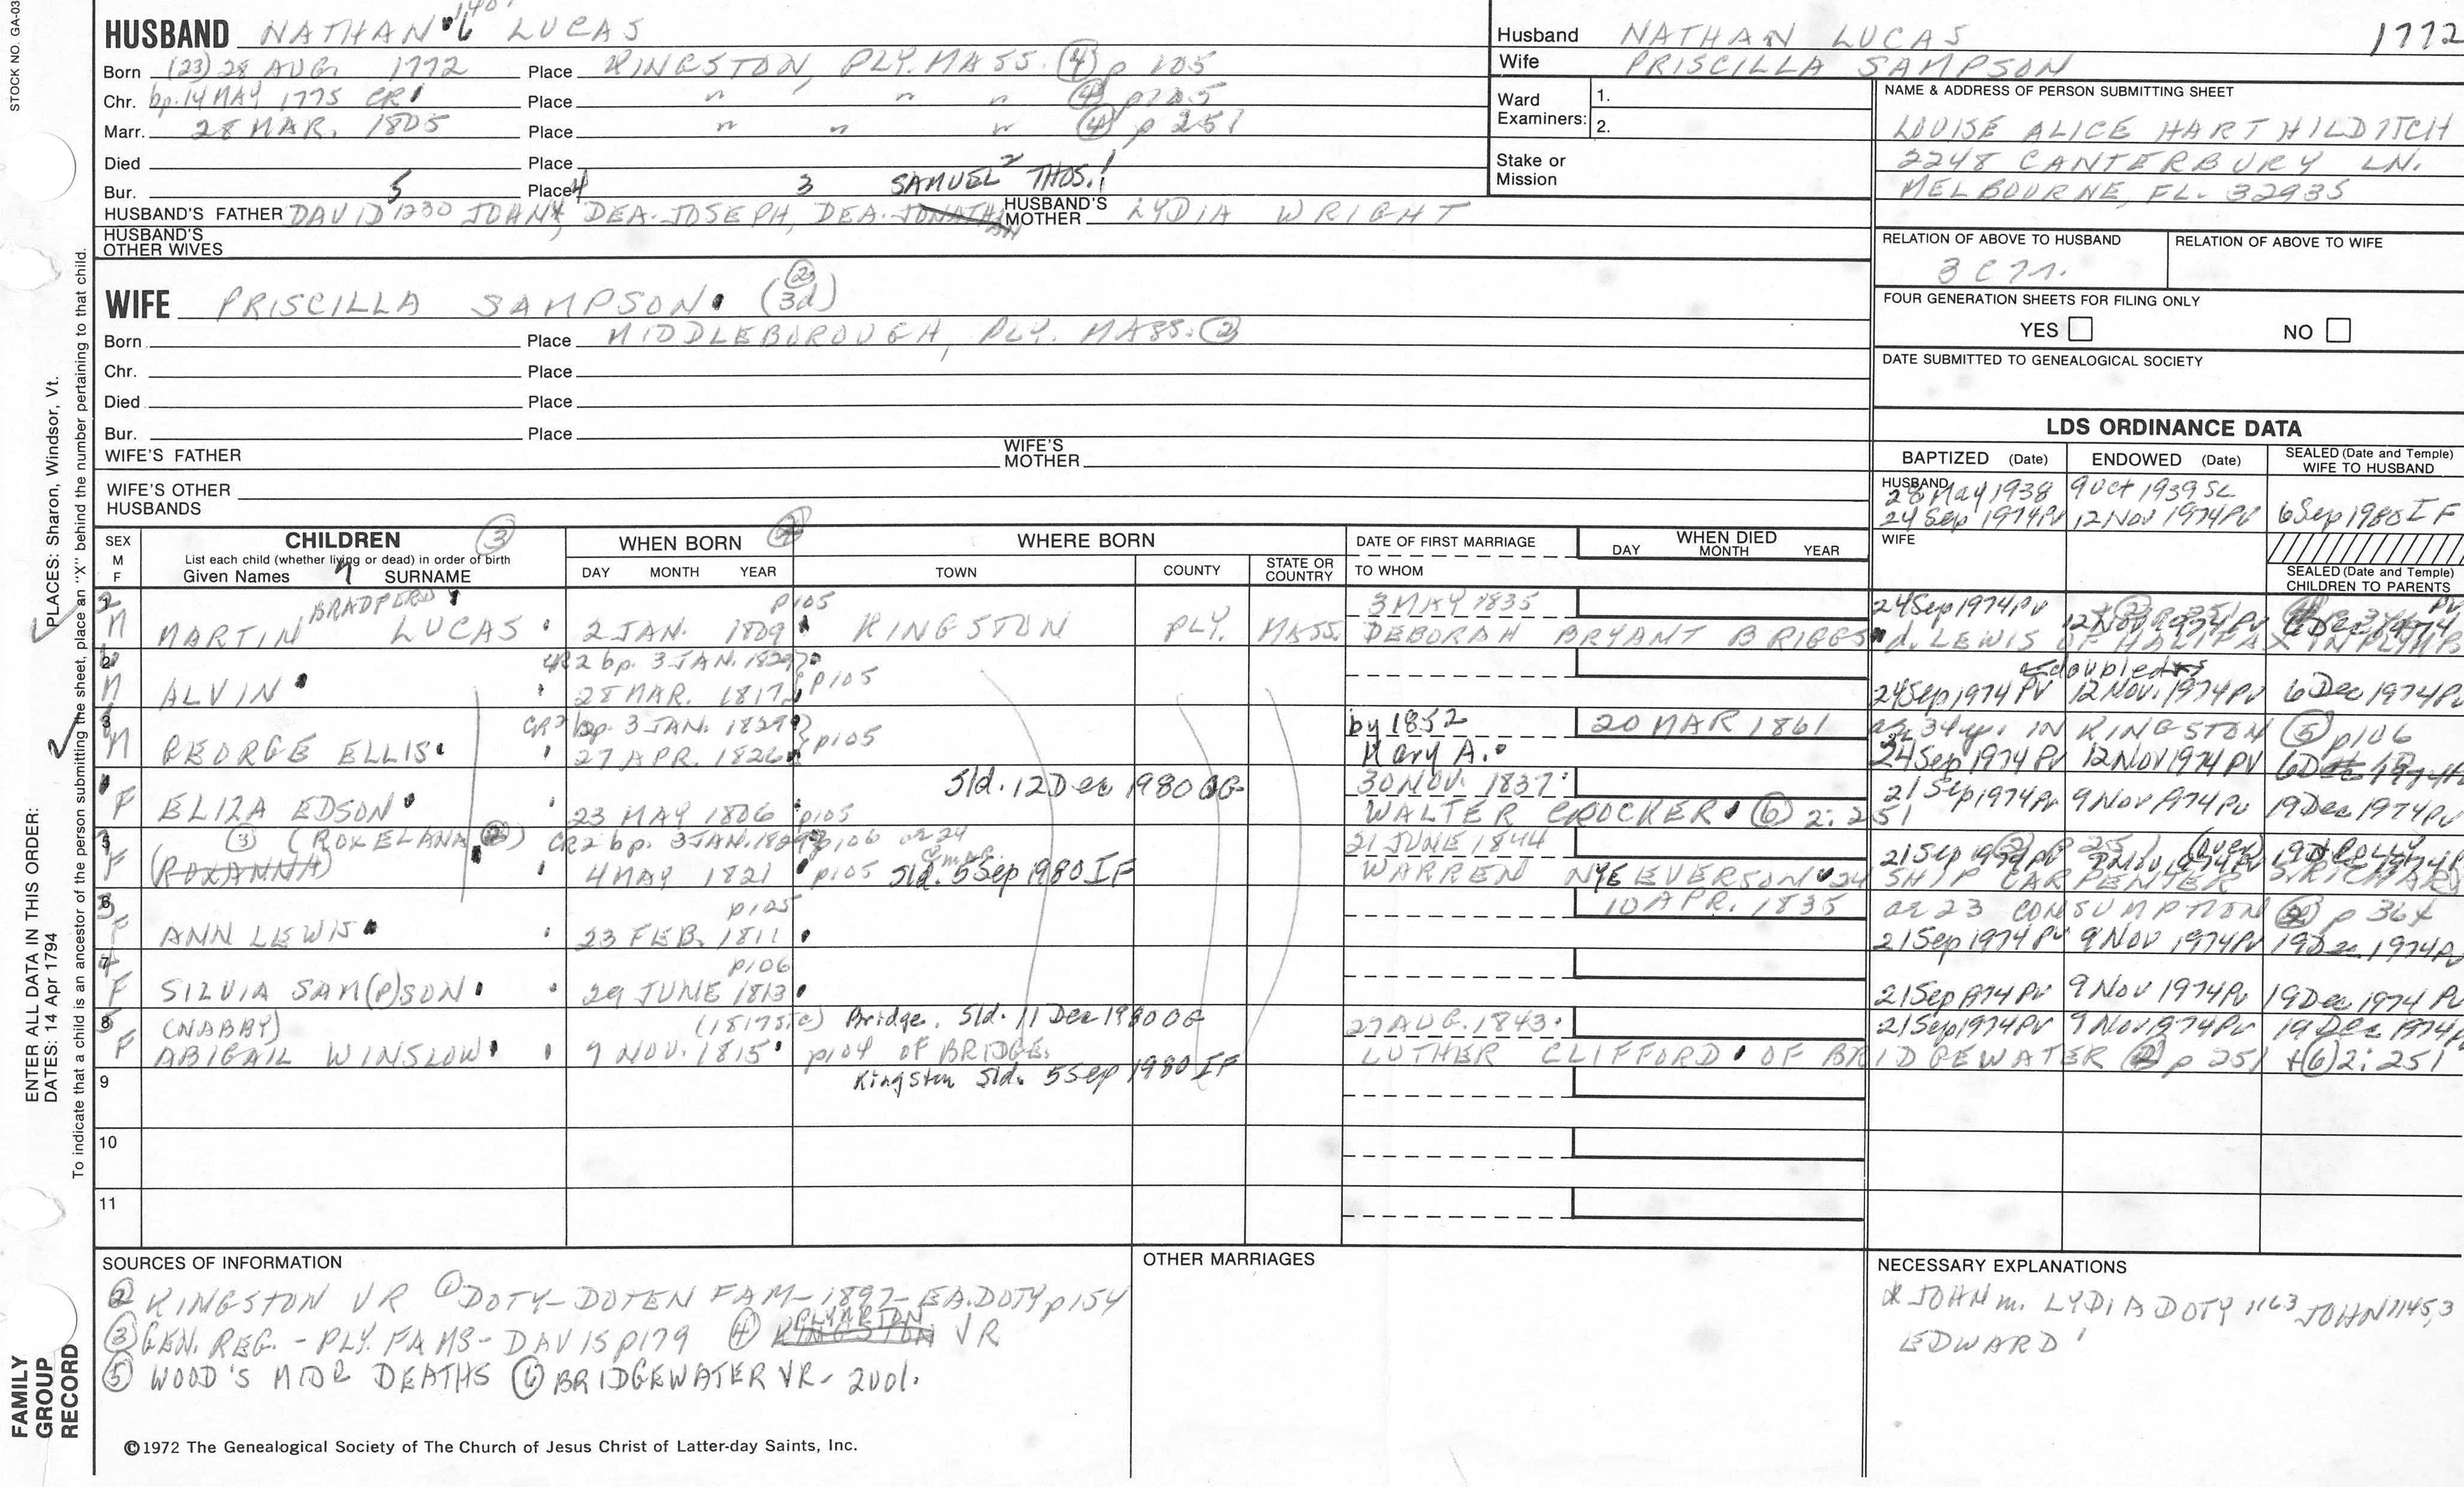 STOCK NO. GA-03
HUSBAND NATHAN 6 LUCAS
Born (23) 28 AUG. 1772 Place KINGSTON, PLY. MASS. (4) p 105
Chr. bp. 14 MAY 1775 CR1 Place " " " (4) p105
Marr. 28 MAR. 1805 Place " " " (4) p 251
Died Place
Bur. 5 Place 4 3 SAMUEL 2 THOS. 1
HUSBAND'S FATHER DAVID 1230 JOHN*, DEA. JOSEPH, DEA. JONATHAN HUSBAND'S MOTHER LYDIA WRIGHT
HUSBAND'S OTHER WIVES
WIFE PRISCILLA SAMPSON (3d) (2)
Born Place MIDDLEBOROUGH, PLY. MASS. (2)
Chr. Place
Died Place
Bur. Place
WIFE'S FATHER WIFE'S MOTHER
WIFE'S OTHER HUSBANDS
Husband NATHAN LUCAS 1772
Wife PRISCILLA SAMPSON
Ward Examiners: 1.
2.
Stake or Mission
NAME & ADDRESS OF PERSON SUBMITTING SHEET
LOUISE ALICE HART HILDITCH
2248 CANTERBURY LN.
MELBOURNE, FL. 32935
RELATION OF ABOVE TO HUSBAND RELATION OF ABOVE TO WIFE
FOUR GENERATION SHEETS FOR FILING ONLY
YES NO
DATE SUBMITTED TO GENEALOGICAL SOCIETY
LDS ORDINANCE DATA
BAPTIZED (Date) ENDOWED (Date) SEALED (Date and Temple) WIFE TO HUSBAND
HUSBAND
28 May 1938 9 Oct 1939 SL
24 Sep 1974 PV 12 Nov 1974 PV 6 Sep 1980 IF
WIFE
SEALED (Date and Temple) CHILDREN TO PARENTS
SEX M F CHILDREN (3) WHEN BORN WHERE BORN DATE OF FIRST MARRIAGE WHEN DIED
List each child (whether living or dead) in order of birth DAY MONTH YEAR
Given Names 7 SURNAME DAY MONTH YEAR TOWN COUNTY STATE OR COUNTRY TO WHOM
BRADFORD p105 3 MAY 1835 24 Sep 1974 PV
M MARTIN LUCAS 2 JAN. 1809 KINGSTON PLY. MASS. DEBORAH BRYANT BRIGGS d. LEWIS OF HALIFAX IN
2 CR2 bp. 3 JAN. 1829
M ALVIN 28 MAR. 1817 p105 24 Sep 1974 PV 12 Nov. 1974 PV 6 Dec 1974 PV
3 CR2 bp. 3 JAN. 1829 by 1852 20 MAR 1861 ae 34y. IN KINGSTON (5) p106
M GEORGE ELLIS 27 APR. 1826 p105 Mary A. 24 Sep 1974 PV 12 Nov 1974 PV
4 Sld. 12 Dec 1980 OG 30 NOV. 1837
F ELIZA EDSON 23 MAY 1806 p105 WALTER CROCKER (6) 2:251 21 Sep 1974 PV 9 Nov 1974 PV 19 Dec 1974 PV
5 (3) (ROXELANA (2)) CR2 bp. 3 JAN. 1829 p106 ae 24 21 JUNE 1844
F (ROXANNA) 4 MAY 1821 p105 Sld. 5 Sep 1980 IF WARREN NYE EVERSON 24 SHIP CARPENTER
6 p105 10 APR. 1835 ae 23 CONSUMPTION p 364
F ANN LEWIS 23 FEB. 1811 21 Sep 1974 PV 9 Nov 1974 PV 19 Dec 1974 PV
7 p106
F SILVIA SAM(P)SON 29 JUNE 1813 21 Sep 1974 PV 9 Nov 1974 PV 19 Dec 1974 PV
8 (NABBY) (1817 sic) Bridge. Sld. 11 Dec 1980 OG 27 AUG. 1843 21 Sep 1974 PV 9 Nov 1974 PV 19 Dec 1974 PV
F ABIGAIL WINSLOW 9 NOV. 1815 p104 OF BRIDGE. LUTHER CLIFFORD OF BRIDGEWATER (2) p 251 + (6) 2:251
9 Kingston Sld. 5 Sep 1980 IF
10
11
SOURCES OF INFORMATION
(2) KINGSTON VR (1) DOTY-DOTEN FAM-1897-E.A. DOTY p154
(3) GEN. REG. - PLY. FAMS - DAVIS p179 (4) KINGSTON PLYMPTON VR
(5) WOOD'S MIDB DEATHS (6) BRIDGEWATER VR - 2 vol.
OTHER MARRIAGES
NECESSARY EXPLANATIONS
* JOHN m. LYDIA DOTY 1163 JOHN 1145, 3
EDWARD 1
©1972 The Genealogical Society of The Church of Jesus Christ of Latter-day Saints, Inc.
FAMILY GROUP RECORD
ENTER ALL DATA IN THIS ORDER:
DATES: 14 Apr 1794
PLACES: Sharon, Windsor, Vt.
To indicate that a child is an ancestor of the person submitting the sheet, place an "X" behind the number pertaining to that child.